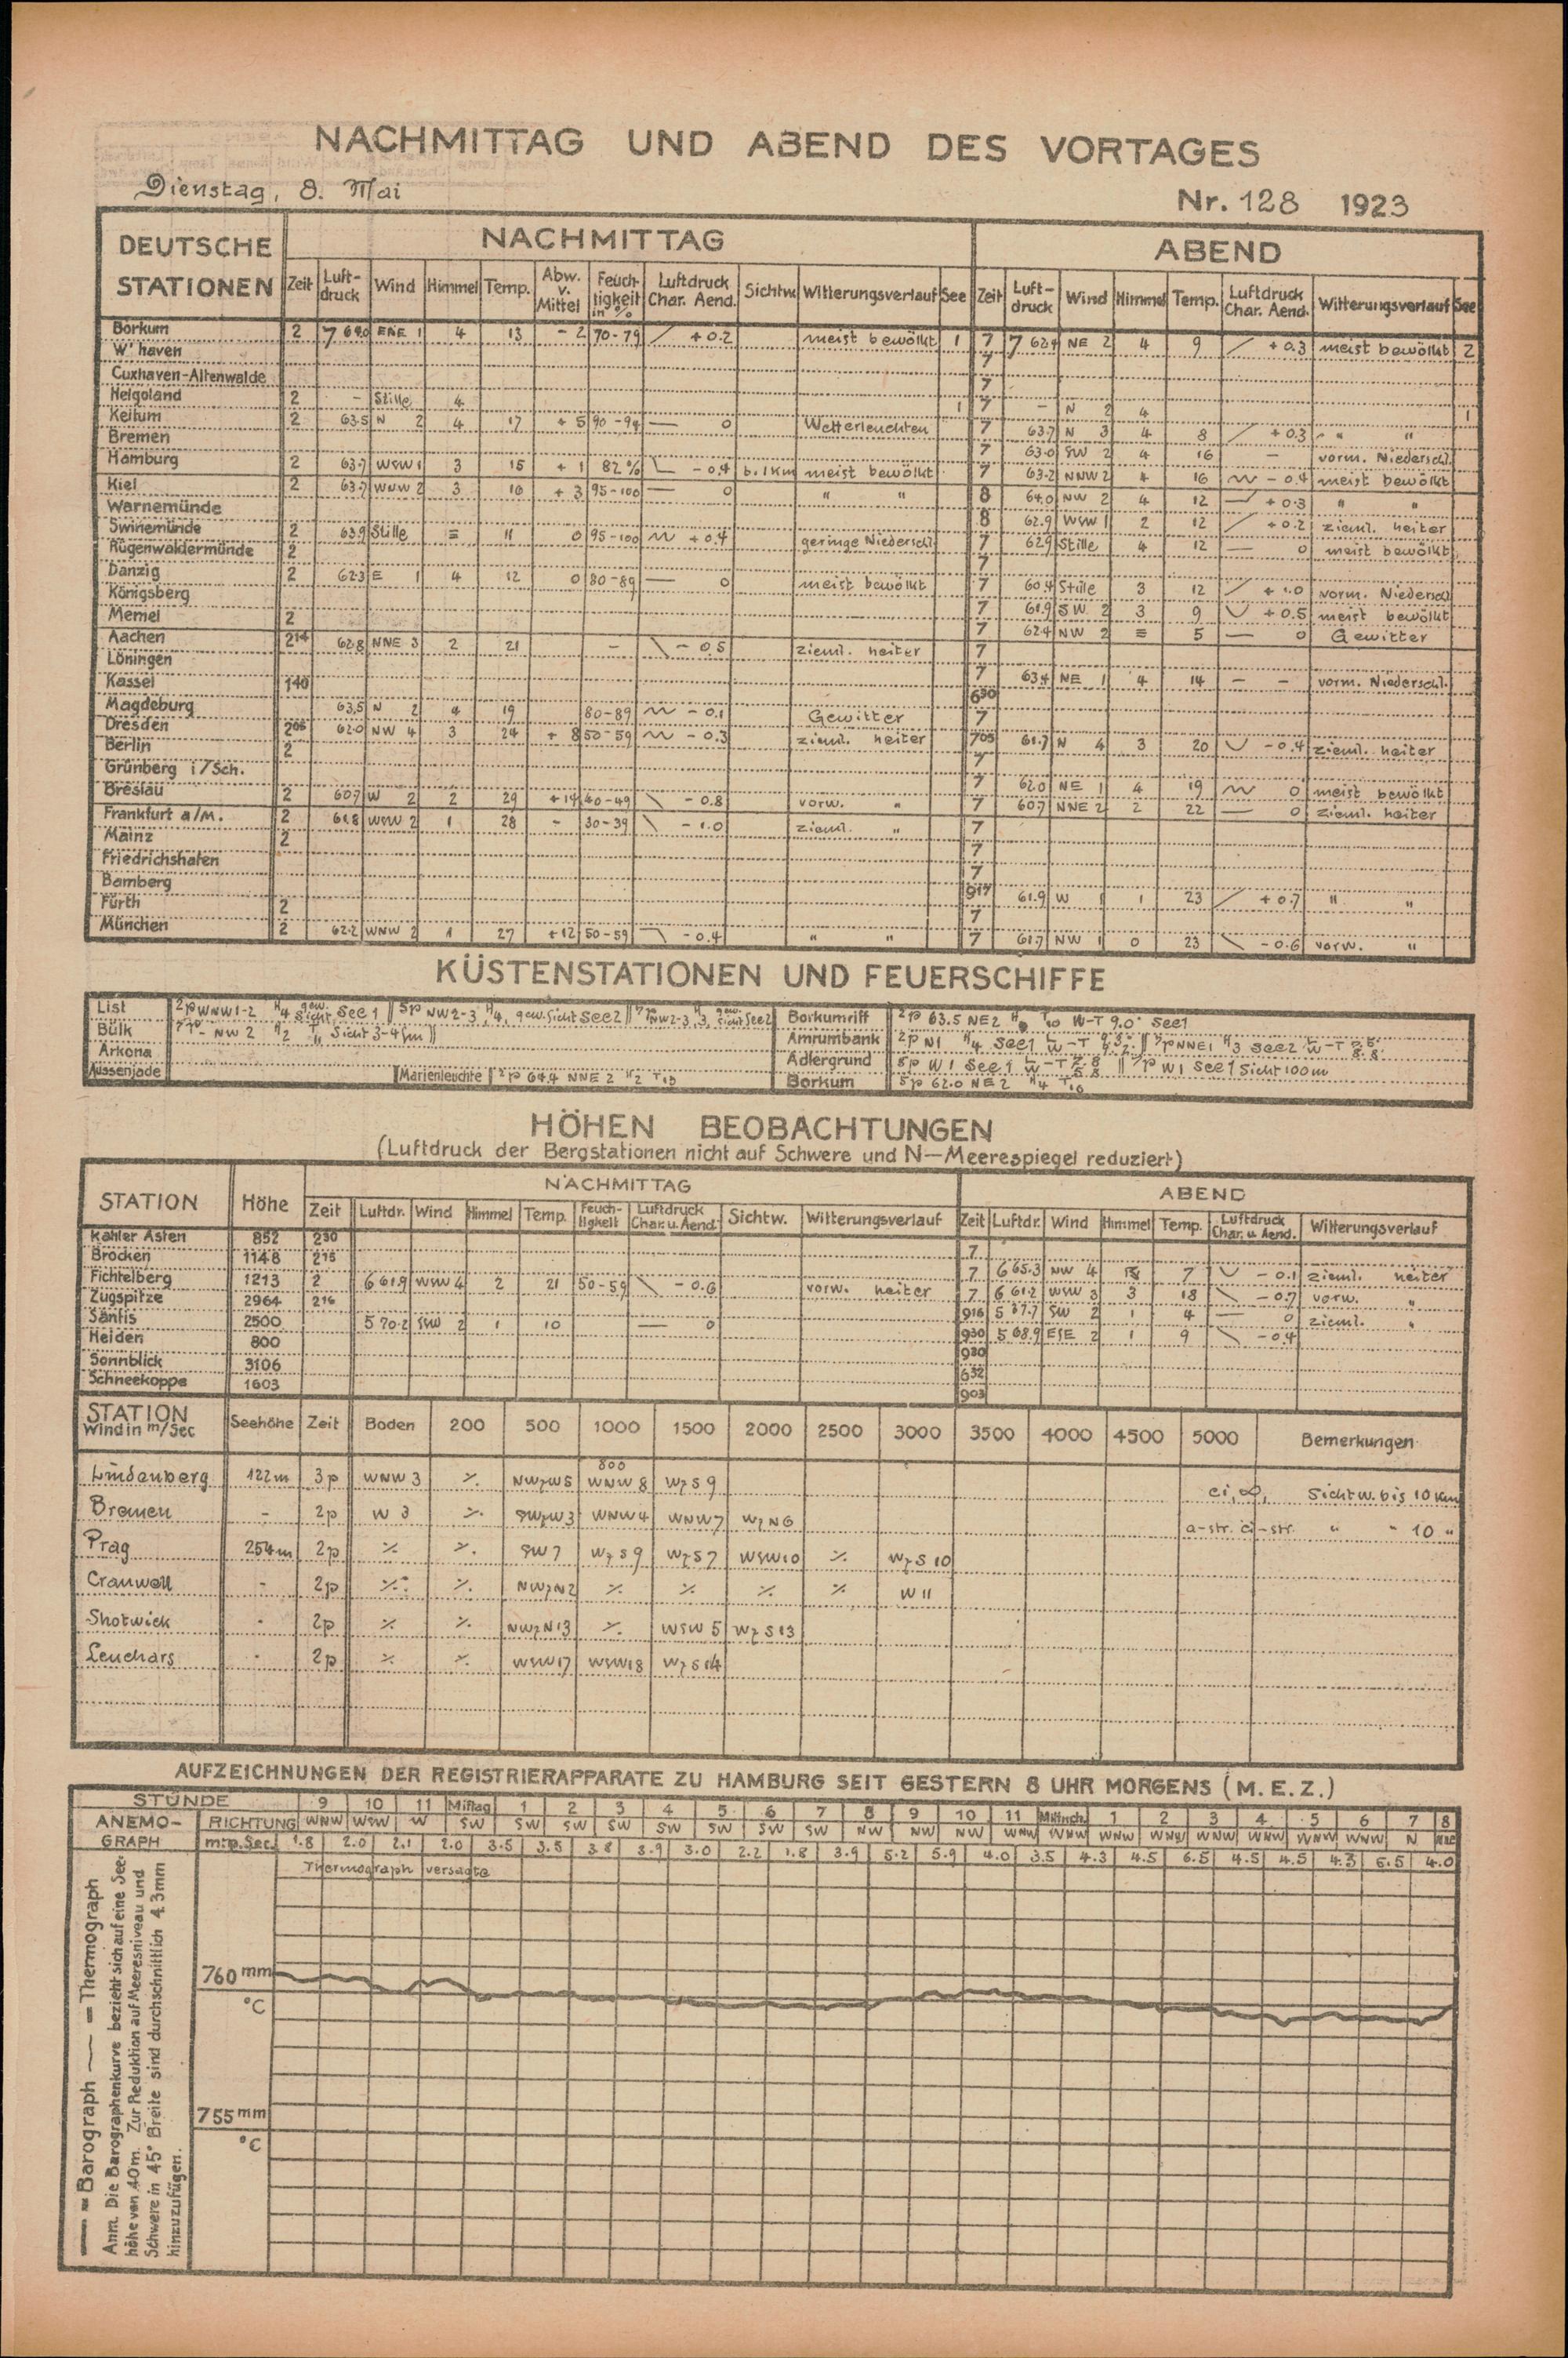 NACHMITTAG UND ABEND DES VORTAGES
Dienstag, 8. Mai
Nr. 128 1923
DEUTSCHE STATIONEN
NACHMITTAG
ABEND
Zeit Luft-druck Wind Himmel Temp. Abw. v. Mittel Feuch-tigkeit in % Luftdruck Char. Aend. Sichtw. Witterungsverlauf See Zeit Luft-druck Wind Himmel Temp. Luftdruck Char. Aend. Witterungsverlauf See
Borkum 2 7 64.0 ENE 1 4 13 - 2 70-79 + 0.2 meist bewölkt 1 7 7 62.4 NE 2 4 9 + 0.3 meist bewölkt 2
W'haven 7
Cuxhaven-Altenwalde 7
Helgoland 2 - Stille 4 1 7 - N 2 4 1
Keitum 2 63.5 N 2 4 17 + 5 90-94 0 Wetterleuchten 7 63.7 N 3 4 8 + 0.3 " "
Bremen 7 63.0 SW 2 4 16 - vorm. Niederschl.
Hamburg 2 63.7 WSW 1 3 15 + 1 82% - 0.4 b. 1 km meist bewölkt 7 63.2 NNW 2 4 16 - 0.4 meist bewölkt
Kiel 2 63.7 WNW 2 3 16 + 3 95-100 0 " " 8 64.0 NW 2 4 12 + 0.3 " "
Warnemünde 8 62.9 WSW 1 2 12 + 0.2 zieml. heiter
Swinemünde 2 63.9 Stille ≡ 11 0 95-100 + 0.4 geringe Niederschl. 7 62.9 Stille 4 12 0 meist bewölkt
Rügenwaldermünde 2 7
Danzig 2 62.3 E 1 4 12 0 80-89 0 meist bewölkt 7 60.4 Stille 3 12 + 1.0 vorm. Niedersch
Königsberg 7 61.9 SW 2 3 9 + 0.5 meist bewölkt
Memel 2 7 62.4 NW 2 ≡ 5 0 Gewitter
Aachen 2¹⁴ 62.8 NNE 3 2 21 - - 0.5 zieml. heiter 7
Löningen 7 63.4 NE 1 4 14 - - vorm. Niederschl.
Kassel 1⁴⁰ 6⁵⁰
Magdeburg 63.5 N 2 4 19 80-89 - 0.1 Gewitter 7
Dresden 2⁰⁵ 62.0 NW 4 3 24 + 8 50-59 - 0.3 zieml. heiter 7⁰⁵ 61.7 N 4 3 20 - 0.4 zieml. heiter
Berlin 2 7
Grünberg i/Sch. 7 62.0 NE 1 4 19 0 meist bewölkt
Breslau 2 60.7 W 2 2 29 + 14 40-49 - 0.8 vorw. " 7 60.7 NNE 2 2 22 0 zieml. heiter
Frankfurt a/M. 2 61.8 WSW 2 1 28 - 30-39 - 1.0 zieml. " 7
Mainz 2 7
Friedrichshafen 7
Bamberg 9¹⁷ 61.9 W 1 1 23 + 0.7 " "
Fürth 2 7
München 2 62.2 WNW 2 1 27 + 12 50-59 - 0.4 " " 7 61.7 NW 1 0 23 - 0.6 vorw. "
KÜSTENSTATIONEN UND FEUERSCHIFFE
List 2p WNW 1-2 H4 gew. Sicht See 1 || 5p NW 2-3 H4, gew. Sicht See 2 || 7p NW 2-3 H3 gew. Sicht See 2
Bülk 7p - NW 2 H2 T11 Sicht 3-4 sm ||
Arkona
Aussenjade
Marienleuchte 2p 64.4 NNE 2 H2 T13
Borkumriff 2p 63.5 NE 2 T10 W-T 9.0° See 1
Amrumbank 2p N1 H4 See 1 || 7p NNE 1 H3 See 2
Adlergrund 5p W 1 See 1 || 7p W 1 See 1 Sicht 100 m
Borkum 5p 62.0 NE 2 H4 T10
HÖHEN BEOBACHTUNGEN
(Luftdruck der Bergstationen nicht auf Schwere und N-Meerespiegel reduziert)
STATION Höhe NACHMITTAG ABEND
Zeit Luftdr. Wind Himmel Temp. Feuch-tigkeit Luftdruck Char. u. Aend. Sichtw. Witterungsverlauf Zeit Luftdr. Wind Himmel Temp. Luftdruck Char. u. Aend. Witterungsverlauf
Kahler Asten 852 2³⁰ 7
Brocken 1148 2¹⁵ 7 6 65.3 NW 4 7 - 0.1 zieml. heiter
Fichtelberg 1213 2 6 61.9 WSW 4 2 21 50-59 - 0.6 vorw. heiter 7 6 61.2 WSW 3 3 18 - 0.7 vorw. "
Zugspitze 2964 2¹⁶ 9¹⁶ 5 37.7 SW 2 1 4 0 zieml. "
Säntis 2500 5 70.2 SSW 2 1 10 0 9³⁰ 5 68.9 ESE 2 1 9 - 0.4
Heiden 800 9³⁰
Sonnblick 3106 6³²
Schneekoppe 1603 9⁰³
STATION Wind in m/Sec Seehöhe Zeit Boden 200 500 1000 1500 2000 2500 3000 3500 4000 4500 5000 Bemerkungen
Lindenberg 122 m 3p WNW 3 ⁒ NWzW 5 800 WNW 8 WzS 9 ci, ∞, Sichtw. bis 10 km
Bremen - 2p W 3 ⁒ SWzW 3 WNW 4 WNW 7 WzN 6 a-str. ci-str. " " 10 "
Prag 254 m 2p ⁒ ⁒ SW 7 WzS 9 WzS 7 WSW 10 ⁒ WzS 10
Cranwell - 2p ⁒ ⁒ NWzN 2 ⁒ ⁒ ⁒ ⁒ W 11
Shotwick - 2p ⁒ ⁒ NWzN 13 ⁒ WSW 5 WzS 13
Leuchars - 2p ⁒ ⁒ WSW 17 WSW 18 WzS 14
AUFZEICHNUNGEN DER REGISTRIERAPPARATE ZU HAMBURG SEIT GESTERN 8 UHR MORGENS (M.E.Z.)
STUNDE 9 10 11 Mittag 1 2 3 4 5 6 7 8 9 10 11 Mittnch. 1 2 3 4 5 6 7 8
ANEMO-GRAPH
RICHTUNG WNW WSW W SW SW SW SW SW SW SW SW NW NW NW WNW WNW WNW WNW WNW WNW WNW WNW N
mtr.p.Sec. 1.8 2.0 2.1 2.0 3.5 3.5 3.8 3.9 3.0 2.2 1.8 3.9 5.2 5.9 4.0 3.5 4.3 4.5 6.5 4.5 4.5 4.3 6.5 4.0
Thermograph versagte
760 mm
°C
755 mm
°C
— = Barograph — = Thermograph
Anm. Die Barographenkurve bezieht sich auf eine See-
höhe von 40 m. Zur Reduktion auf Meeresniveau und
Schwere in 45° Breite sind durchschnittlich 4.3 mm
hinzuzufügen.